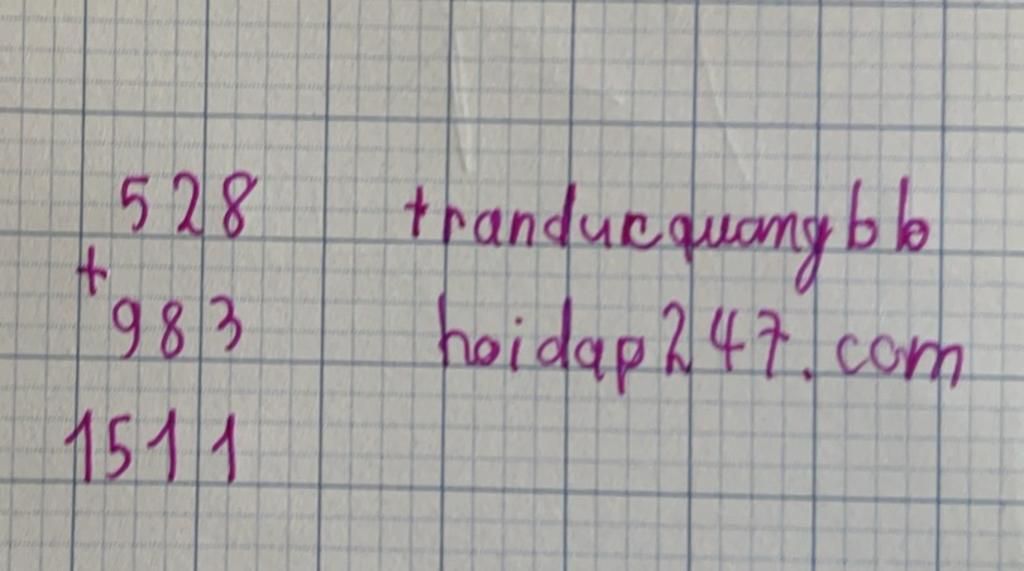 528 tranducquangbb
+
983 hoidap247.com
1511